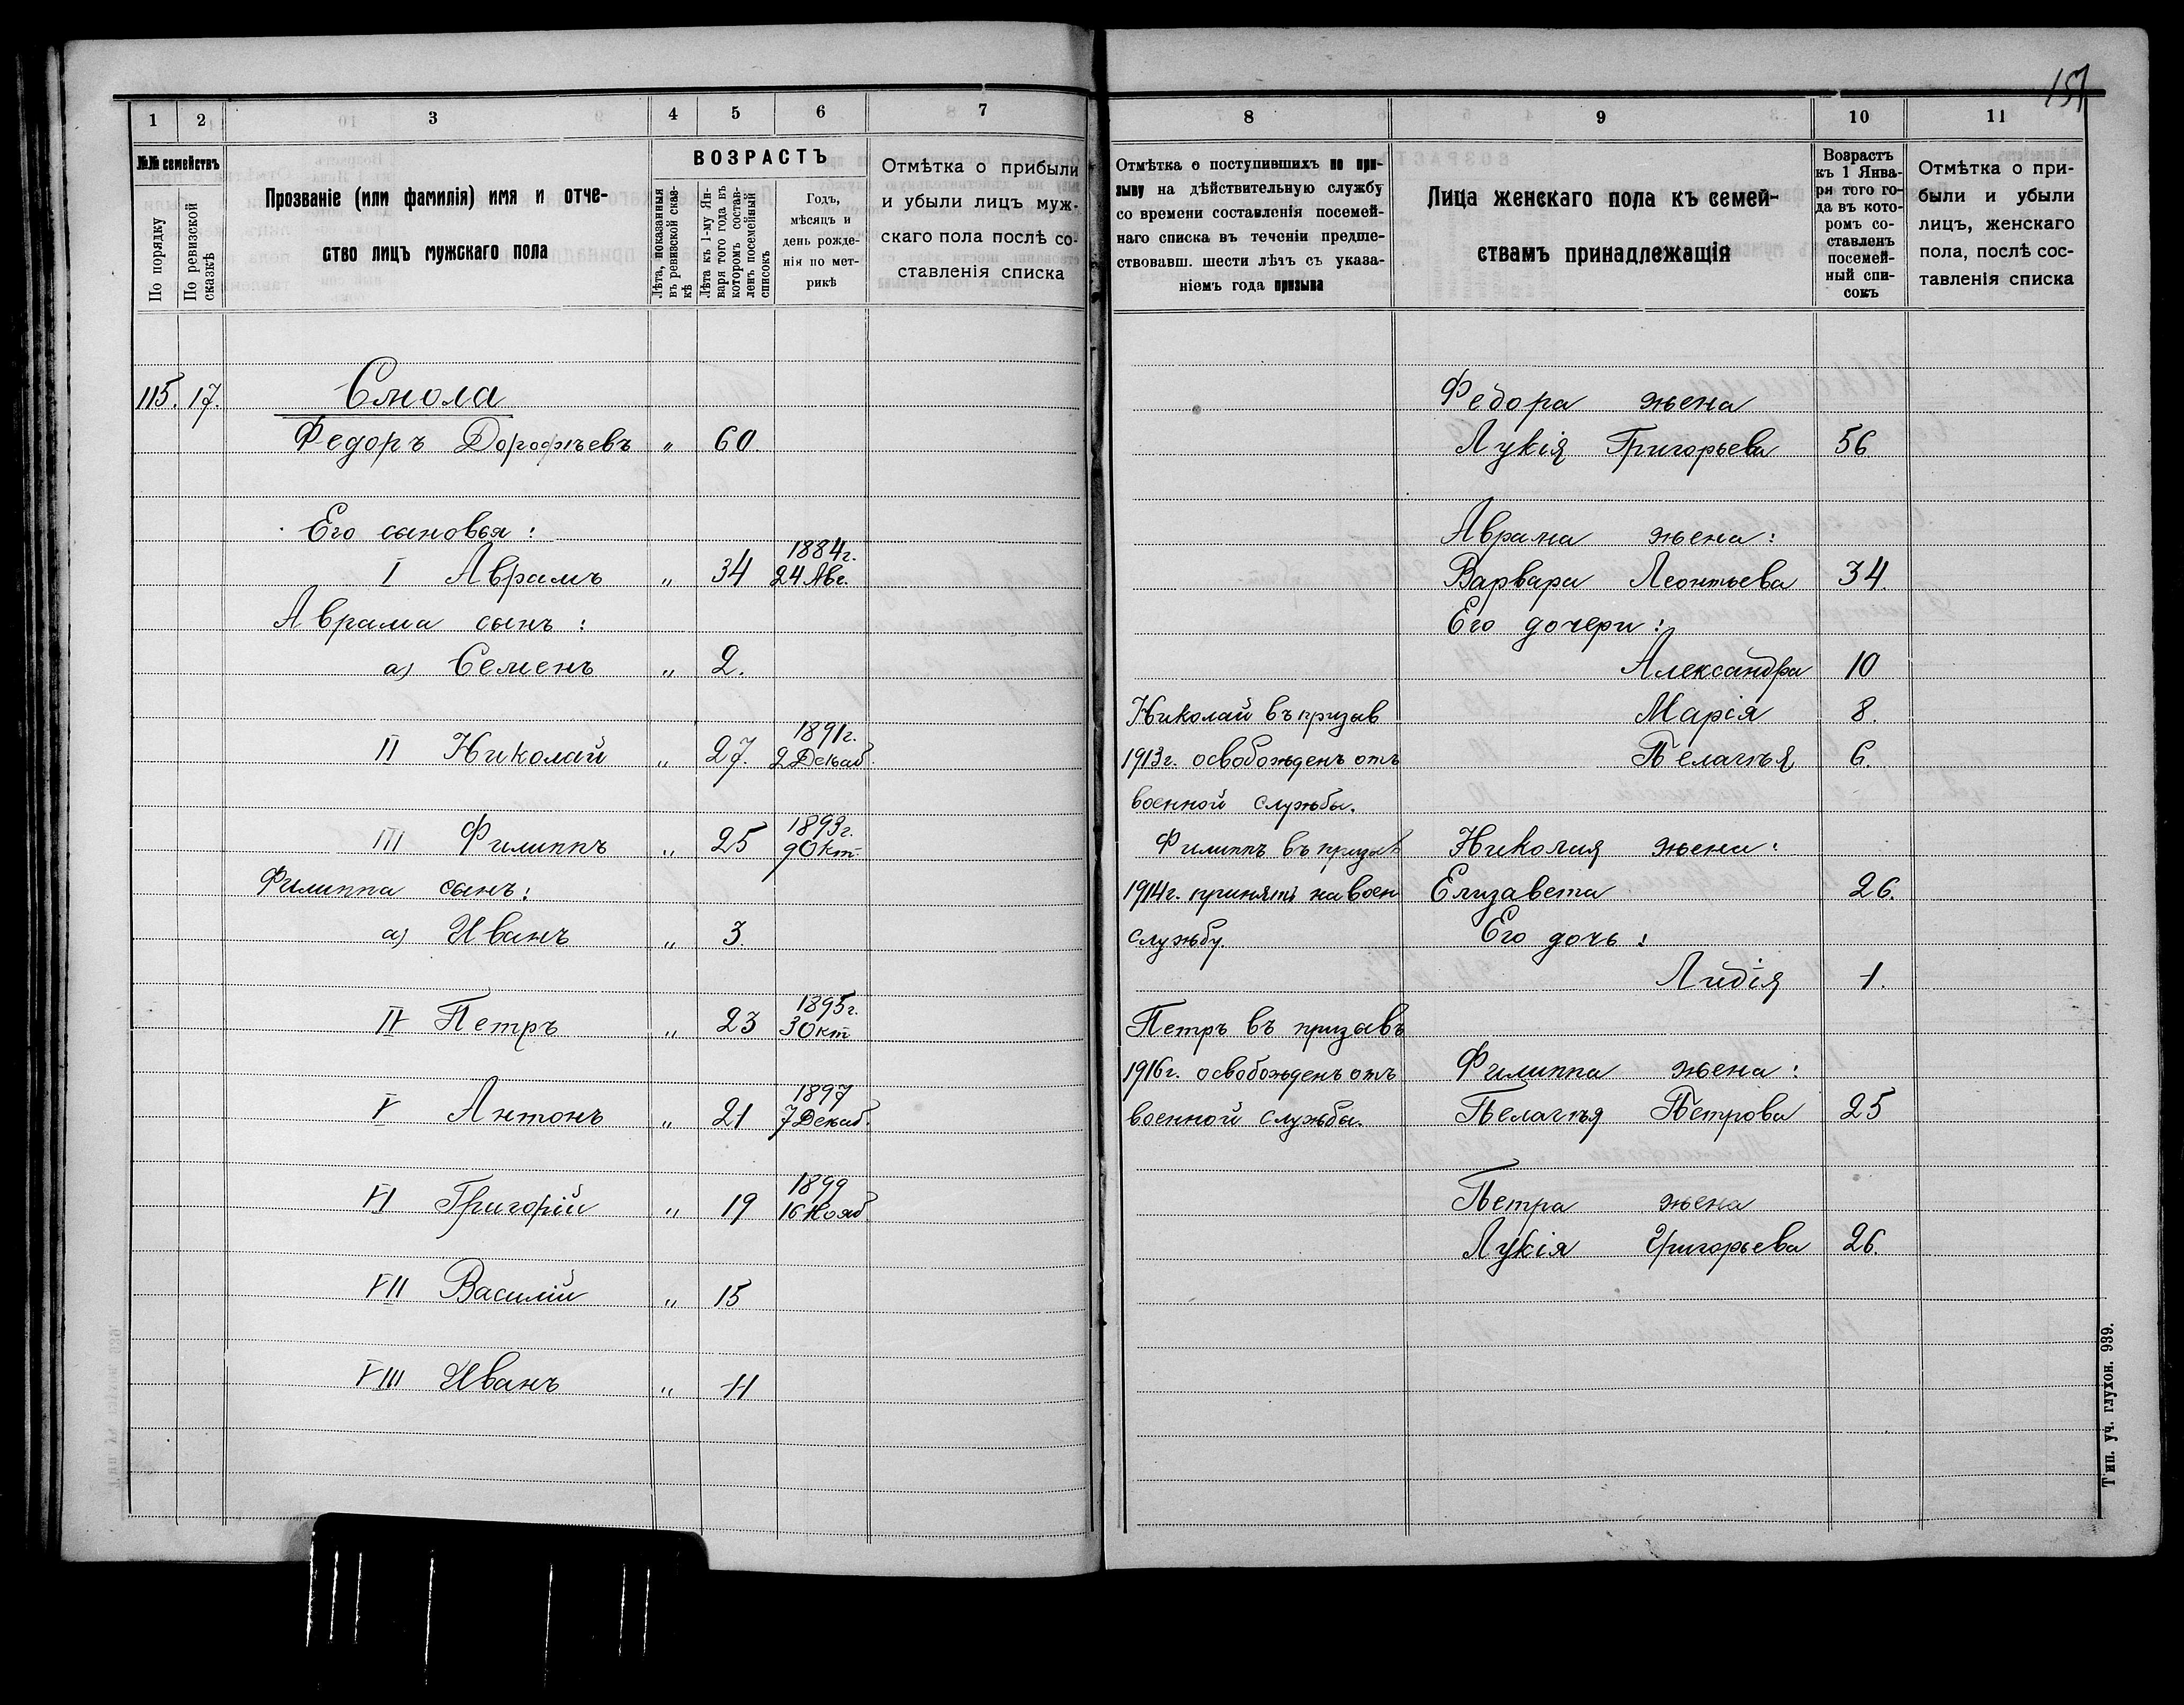 157
1 2 3 4 5 6 7
№№ семействъ
По порядку
По ревизской сказкѣ
Прозваніе (или фамилія) имя и отче-
ство лицъ мужскаго пола
ВОЗРАСТЪ
Лѣта, показанныя
въ ревизской сказ-
кѣ
Лѣта къ 1-му Ян-
варя того года въ
которомъ состав-
ленъ посемейный
списокъ
Годъ,
мѣсяцъ и
день рожде-
нія по мет-
рикѣ
Отмѣтка о прибыли
и убыли лицъ муж-
скаго пола послѣ со-
ставленія списка
115. 17. Смола
Федоръ Дорофѣевъ „ 60.
Его сыновья:
1884г.
I Аврамъ „ 34 24 Авг.
Аврама сынъ:
а) Семенъ „ 2.
1891г.
II Николай „ 27. 2 Декаб.
1893г.
III Филиппъ „ 25 9 Окт.
Филиппа сынъ:
а) Иванъ „ 3.
1895г.
IV Петръ „ 23 3 Окт
1897
V Антонъ „ 21 7 Декаб.
1899
VI Григорій „ 19 16 Нояб
VII Василій „ 15
VIII Иванъ „ 11
8 9 10 11
Отмѣтка о поступившихъ по при-
зыву на дѣйствительную службу
со времени составленія посемей-
наго списка въ теченіи предше-
ствовавш. шести лѣтъ съ указа-
ніемъ года призыва
Лица женскаго пола къ семей-
ствамъ принадлежащія
Возрастъ
къ 1 Янва-
ря того го-
да въ кото-
ромъ со-
ставленъ
посемей-
ный спи-
сокъ
Отмѣтка о при-
были и убыли
лицъ, женскаго
пола, послѣ сос-
тавленія списка
Федора жена
Лукія Григорьева 56
Аврама жена:
Варвара Леонтьева 34.
Его дочери:
Александра 10
Николай въ призыв Марія 8.
1913г. освобожденъ отъ Пелагѣя 6.
военной службы.
Филиппъ въ призыв Николая жена:
1914г. принятъ на воен Елизавета 26.
службу. Его дочь:
Лидія 1.
Петръ въ призывъ
1916г. освобожденъ отъ Филиппа жена:
военной службы. Пелагѣя Петрова 25
Петра жена
Лукія Григорьева 26.
Тип. уч. глухон. 939.